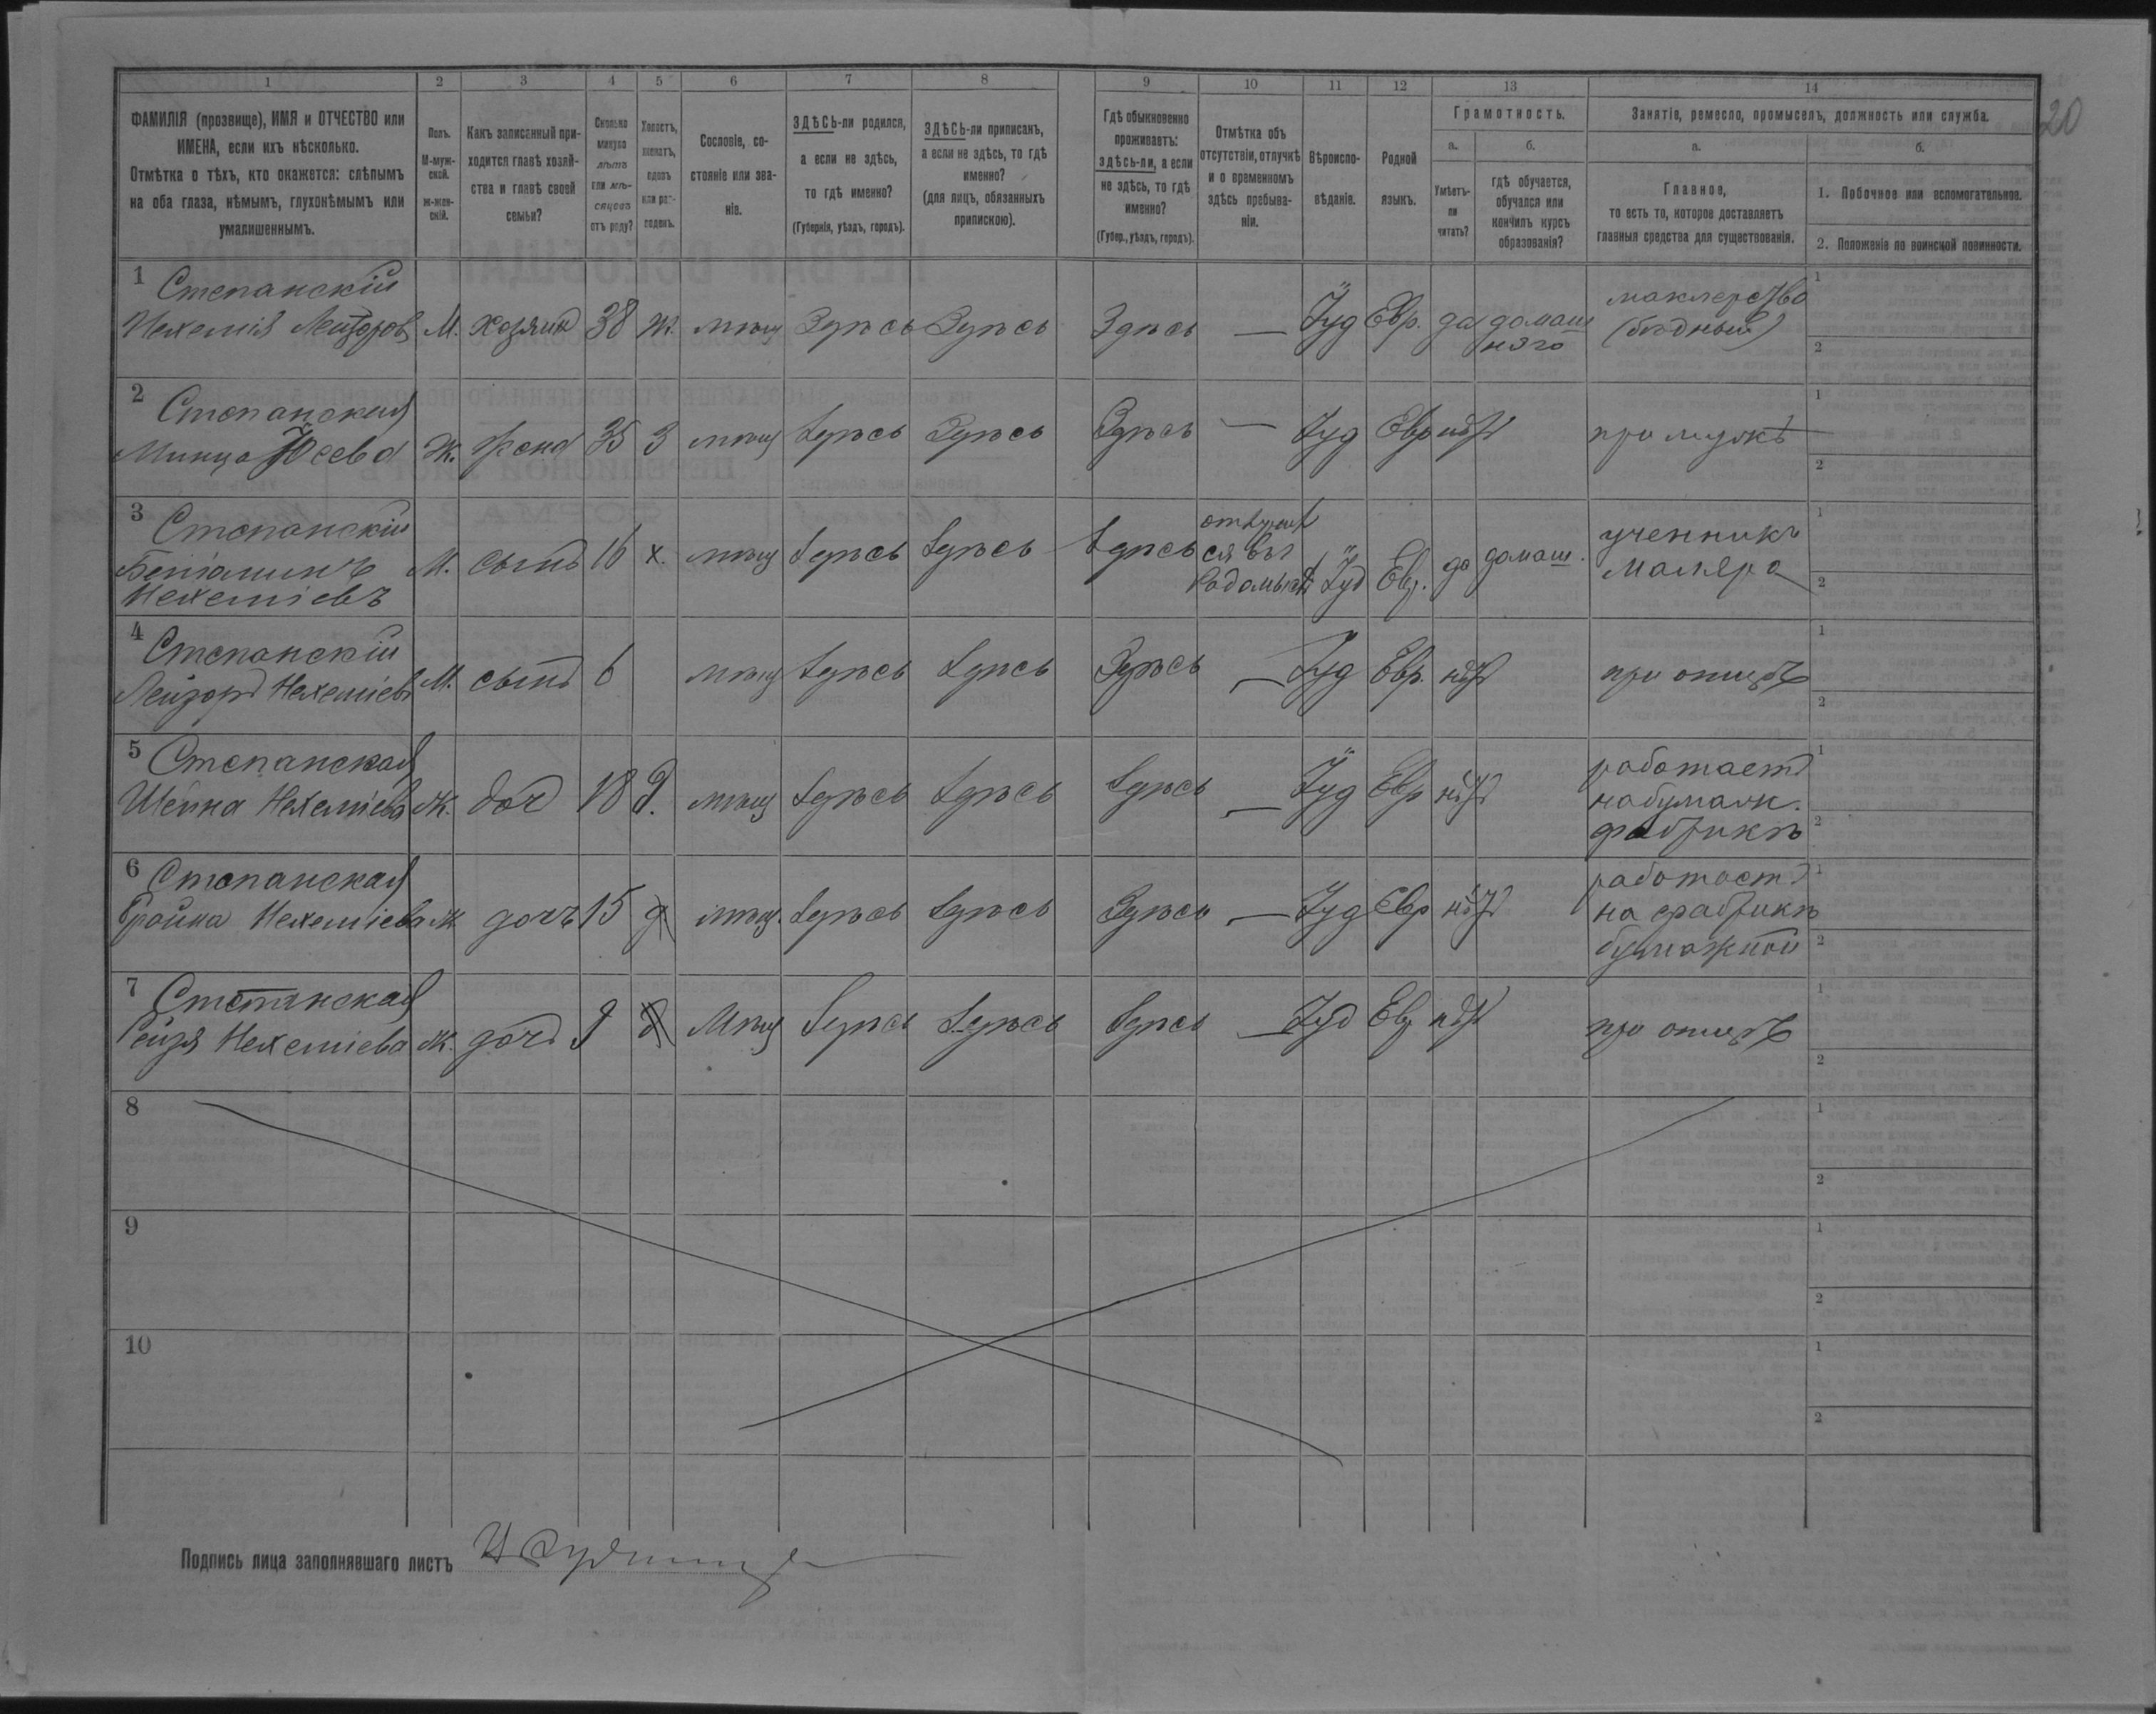 20
1 2 3 4 5 6 7 8 9 10 11 12 13 14
ФАМИЛІЯ (прозвище), ИМЯ и ОТЧЕСТВО или
ИМЕНА, если ихъ нѣсколько.
Отмѣтка о тѣхъ, кто окажется: слѣпымъ
на оба глаза, нѣмымъ, глухонѣмымъ или
умалишеннымъ.
Полъ.
М-муж-
ской.
Ж-жен-
скій.
Какъ записанный при-
ходится главѣ хозяй-
ства и главѣ своей
семьи?
Сколько
минуло
лѣтъ
или мѣ-
сяцевъ
отъ роду?
Холостъ,
женатъ,
вдовъ
или раз-
веденъ.
Сословіе, со-
стояніе или зва-
ніе.
ЗДѢСЬ-ли родился,
а если не здѣсь,
то гдѣ именно?
(Губернія, уѣздъ, городъ).
ЗДѢСЬ-ли приписанъ,
а если не здѣсь, то гдѣ
именно?
(для лицъ, обязанныхъ
припискою).
Гдѣ обыкновенно
проживаетъ:
здѣсь-ли, а если
не здѣсь, то гдѣ
именно?
(Губер., уѣздъ, городъ).
Отмѣтка объ
отсутствіи, отлучкѣ
и о временномъ
здѣсь пребыва-
ніи.
Вѣроиспо-
вѣданіе.
Родной
языкъ.
Грамотность.
а.
Умѣетъ-
ли
читать?
б.
гдѣ обучается,
обучался или
кончилъ курсъ
образованія?
Занятіе, ремесло, промыселъ, должность или служба.
а.
Главное,
то есть то, которое доставляетъ
главныя средства для существованія.
б.
1. Побочное или вспомогательное.
2. Положеніе по воинской повинности.
1 Степанскій
Нехемія Лейзоровъ М. хозяинъ 38 ж. мѣщ Здѣсь Здѣсь Здѣсь — Іуд Евр. да домаш
няго
маклерство
(бѣдный)
1
2
2 Степанская
Минца Юсева Ж. жена 35 З мѣщ Здѣсь Здѣсь Здѣсь — Іуд Евр нѣтъ при мужѣ
1
2
3 Степанскій
Беніаминъ
Нехеміевъ М. сынъ 16 х. мѣщ Здѣсь Здѣсь Здѣсь
ся въ
Іуд Евр. да домаш.
ученникъ
маляра
1
2
4 Степанскій
Лейзоръ Нехеміевъ М. сынъ 6 мѣщ Здѣсь Здѣсь Здѣсь — Іуд Евр. нѣтъ при отцѣ
1
2
5 Степанская
Шейна Нехеміева Ж. доч 18 д. мѣщ Здѣсь Здѣсь Здѣсь — Іуд Евр нѣтъ
работаетъ
на бумажн.
фабрикѣ
1
2
6 Степанская
Бройна Нехеміева Ж дочъ 15 д мѣщ. Здѣсь Здѣсь Здѣсь — Іуд Евр нѣтъ
работаетъ
на фабрикѣ
бумажной
1
2
7 Степанская
Рейзя Нехеміева Ж. дочъ 9 д Мѣщ Здѣсь Здѣсь Здѣсь — Іуд Евр нѣтъ при отцѣ
1
2
8
1
2
9
1
2
10
1
2
Подпись лица заполнявшаго листъ